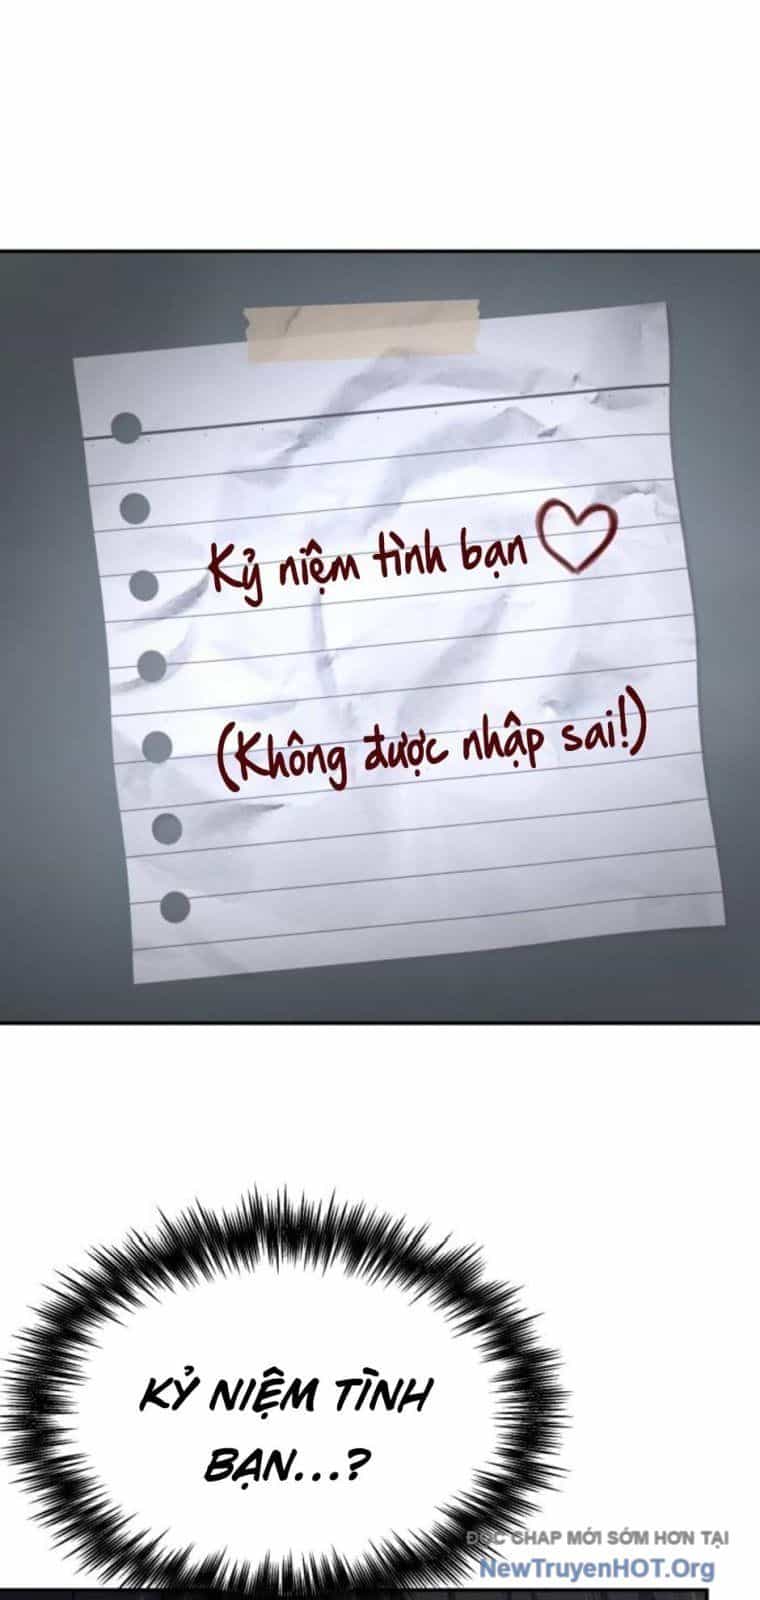 Kỷ niệm tình bạn
(Không được nhập sai!)
KỶ NIỆM TÌNH
BẠN...?
ĐỌC CHAP MỚI SỚM HƠN TẠI
NewTruyenHOT.Org